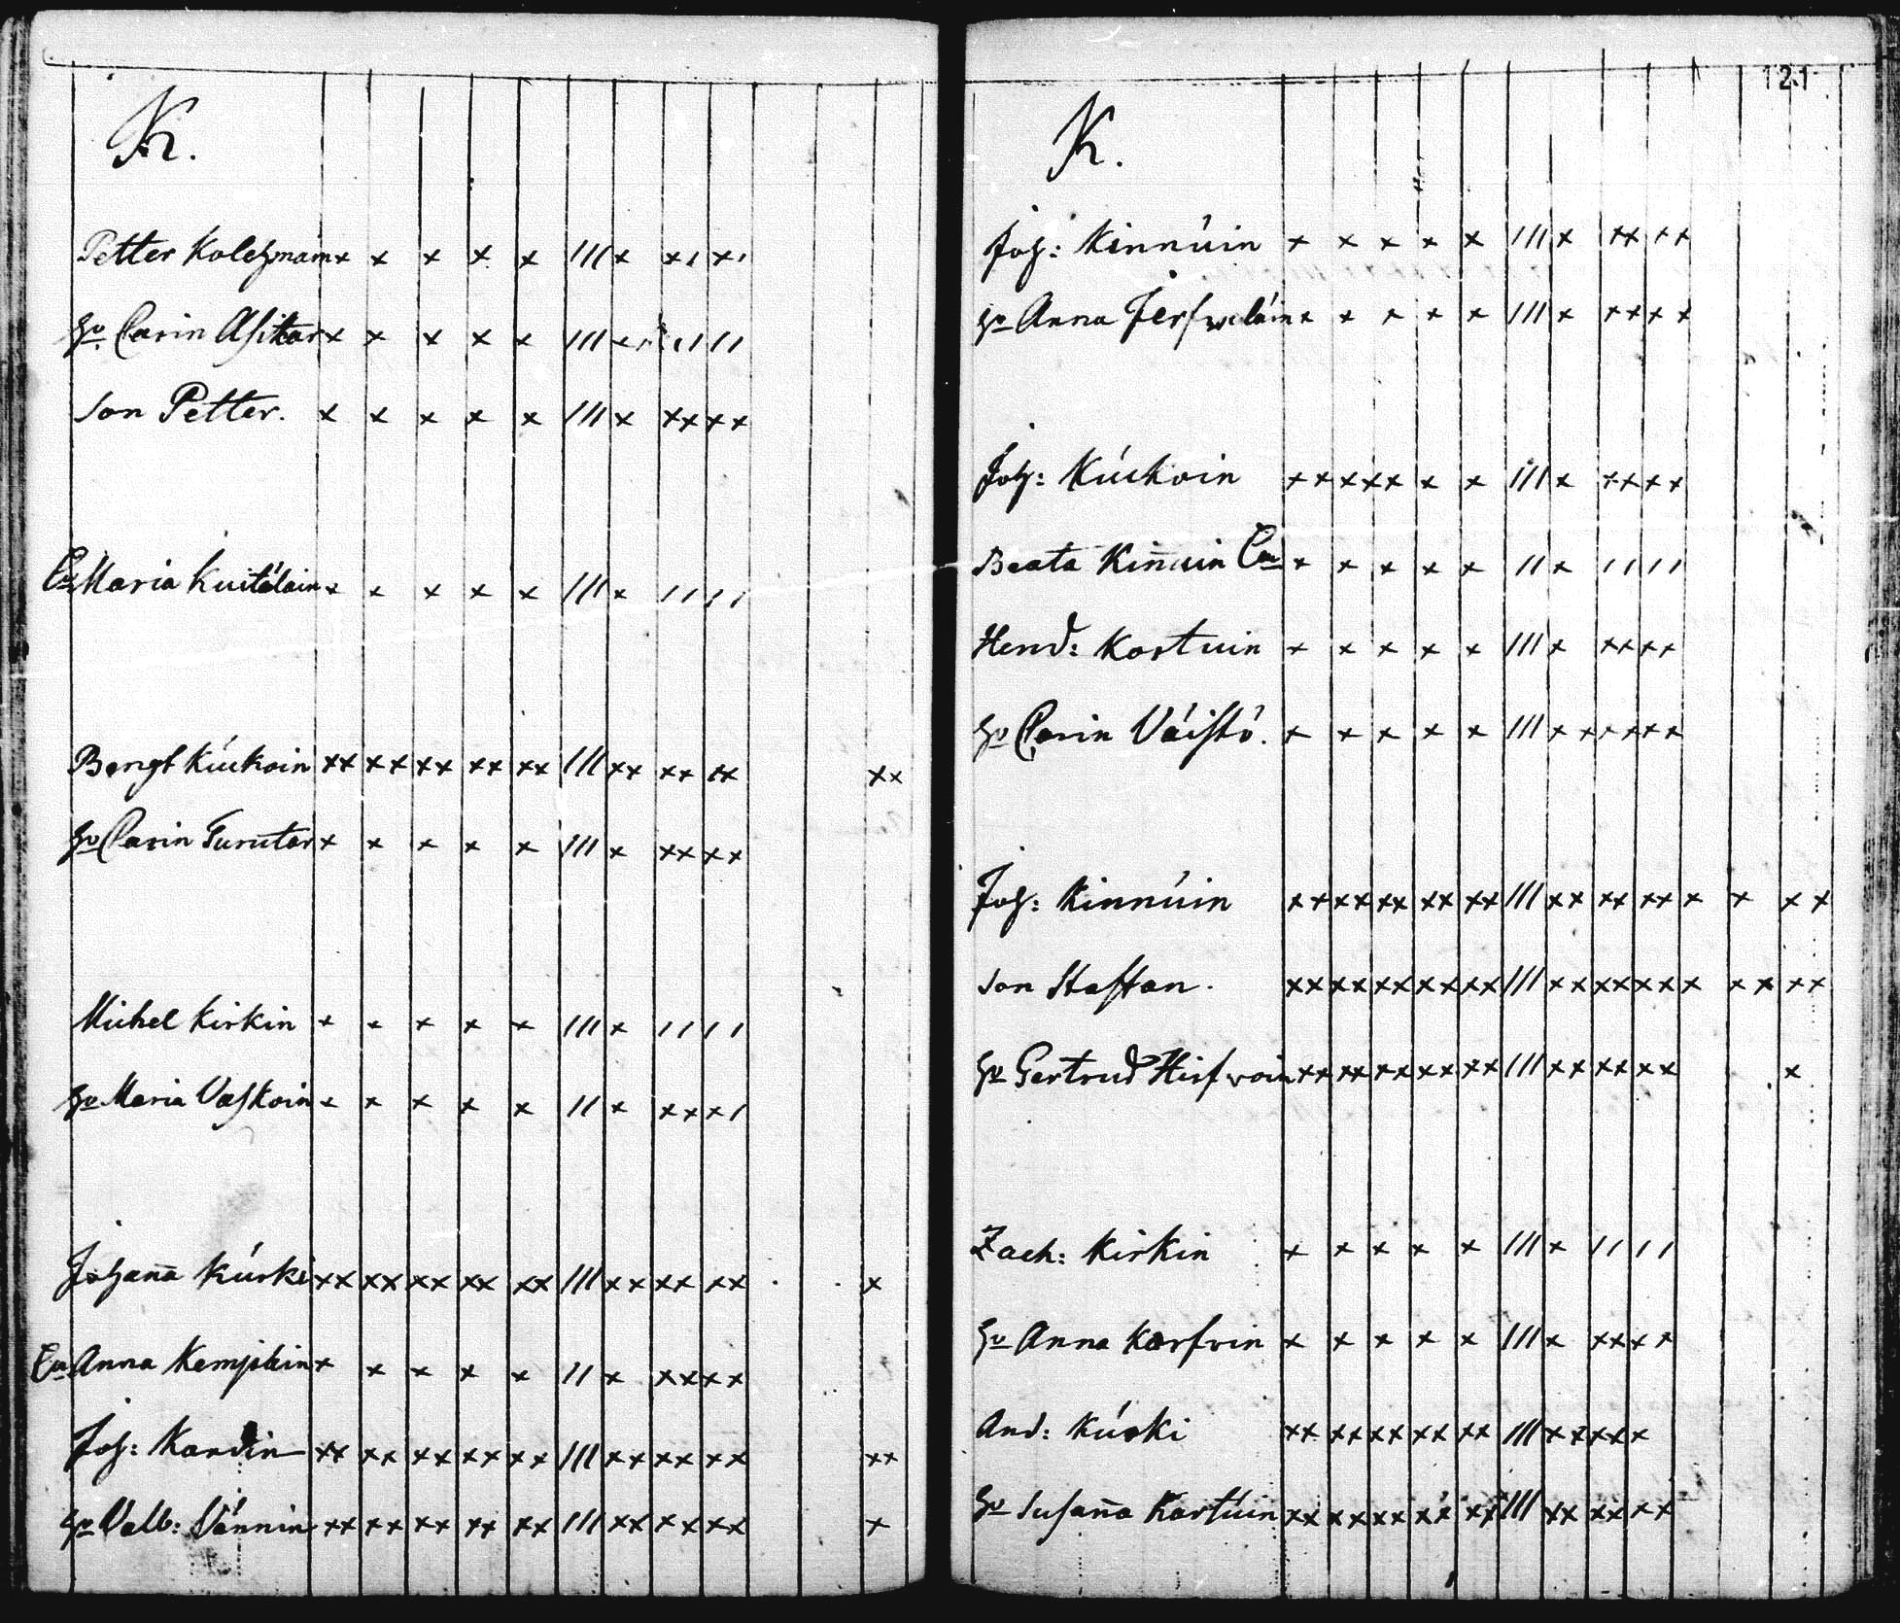 K.
Petter Kolehmain x x x x x /// x x/ x/
Hu Carin Asikar x x x x x /// x // //
son Petter. x x x x x /// x xx xx
Enk Maria Kuitúlain x x x x x /// x // //
Bengt Kiukoin xx xx xx xx xx /// xx xx xx xx
Hu Carin Turutar x x x x x /// x xx xx
Michel Kirkin x x x x x /// x // //
Hu Maria Vaskoin x x x x x // x xx x/
Johana Kúrki xx xx xx xx xx /// xx xx xx x
Enk Anna Kempiäin x x x x x // x xx xx
Joh: Kardin xx xx xx xx xx /// xx xx xx xx
Hu Valb: Vánnin xx xx xx xx xx /// xx xx xx x
121
K.
Joh: Kinnúin x x x x x /// x xx xx
Hu Anna x x x x x /// x xx xx
Joh: Kúukoin xx xx x x x /// x xx xx
Beata Kinuin Enk x x x x x // x // //
Hend: Kortuin x x x x x /// x xx xx
Hu Carin Váistó. x x x x x /// x x x x x x
Joh: Kinnúin xx xx xx xx xx /// xx xx xx x x x x
son Staffan. xx xx xx xx xx /// xx xx xx x x x x x
Hu Gertrud Hirfvoin xx xx xx xx xx /// xx xx xx x
Zach: Kirkin x x x x x /// x // //
Hu Anna Karfvin x x x x x /// x xx xx
And: Kúrki xx xx xx xx xx /// xx xx x
Hu Susana Kortúin xx xx xx xx xx /// xx xx xx